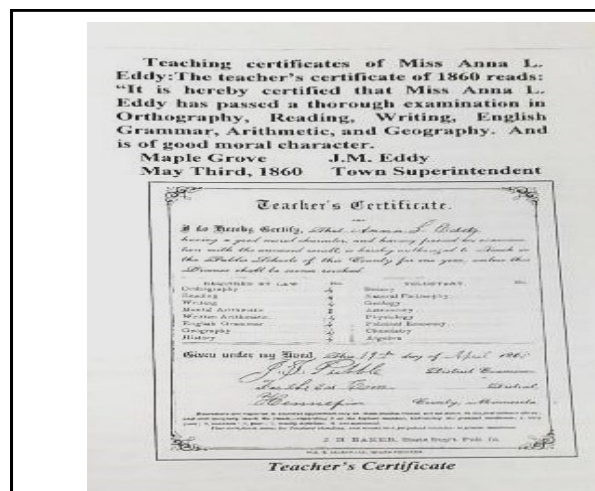 Teaching certificates of Miss Anna L.
Eddy:The teacher's certificate of 1860 reads:
"It is hereby certified that Miss Anna L.
Eddy has passed a thorough examination in
Orthography, Reading, Writing, English
Grammar, Arithmetic, and Geography. And
is of good moral character.
Maple Grove J.M. Eddy
May Third, 1860 Town Superintendent
Teacher's Certificate.
I do Hereby Certify, That Anna L. Eddy
having a good moral character, and having passed an examina-
tion with the annexed result, is hereby authorized to teach in
the Public Schools of this County for one year, unless this
License shall be sooner revoked.
REQUIRED BY LAW No. VOLUNTARY. No.
Orthography Botany
Reading Natural Philosophy
Writing Geology
Mental Arithmetic Astronomy
Written Arithmetic Physiology
English Grammar Political Economy
Geography Chemistry
History Algebra
Given under my Hand, This 19th day of April
District Examiner
District,
Hennepin County, Minnesota
J. H. BAKER, State Sup't. Pub. In.
Teacher's Certificate